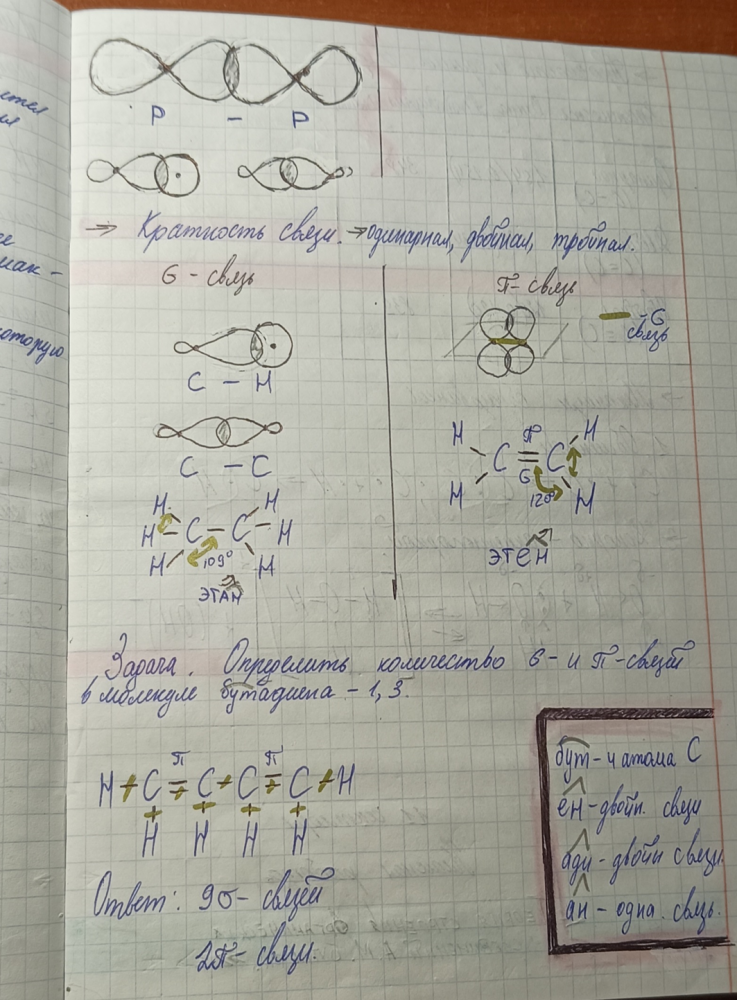 P - P
→ Кратность связи. → одинарная, двойная, тройная.
б - связь
π - связь
- б
связь
C - H
C - C
H H
H - C - C - H
H 109° H
этан
H π H
C = C
H б 120° H
этен
Задача. Определить количество б- и π-связей
в молекуле бутадиена - 1,3.
π π
H + C = C + C = C + H
H H H H
Ответ: 9σ- связей
2π- связи.
бут- 4 атома C
ен - двойн. связи
ади - двойн связи.
ан - одна. связь.